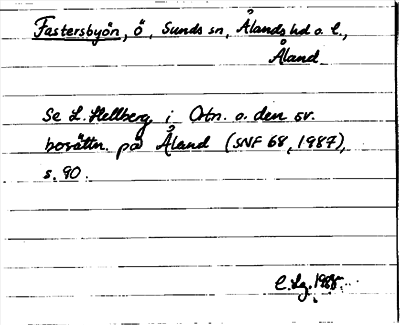 Fastersbyön, ö, Sunds sn, Ålands hd o. l.,
Åland
Se L. Hellberg i Ortn. o. den sv.
bosättn. på Åland (SNF 68, 1987),
s. 90.
C. Lg. 1988.